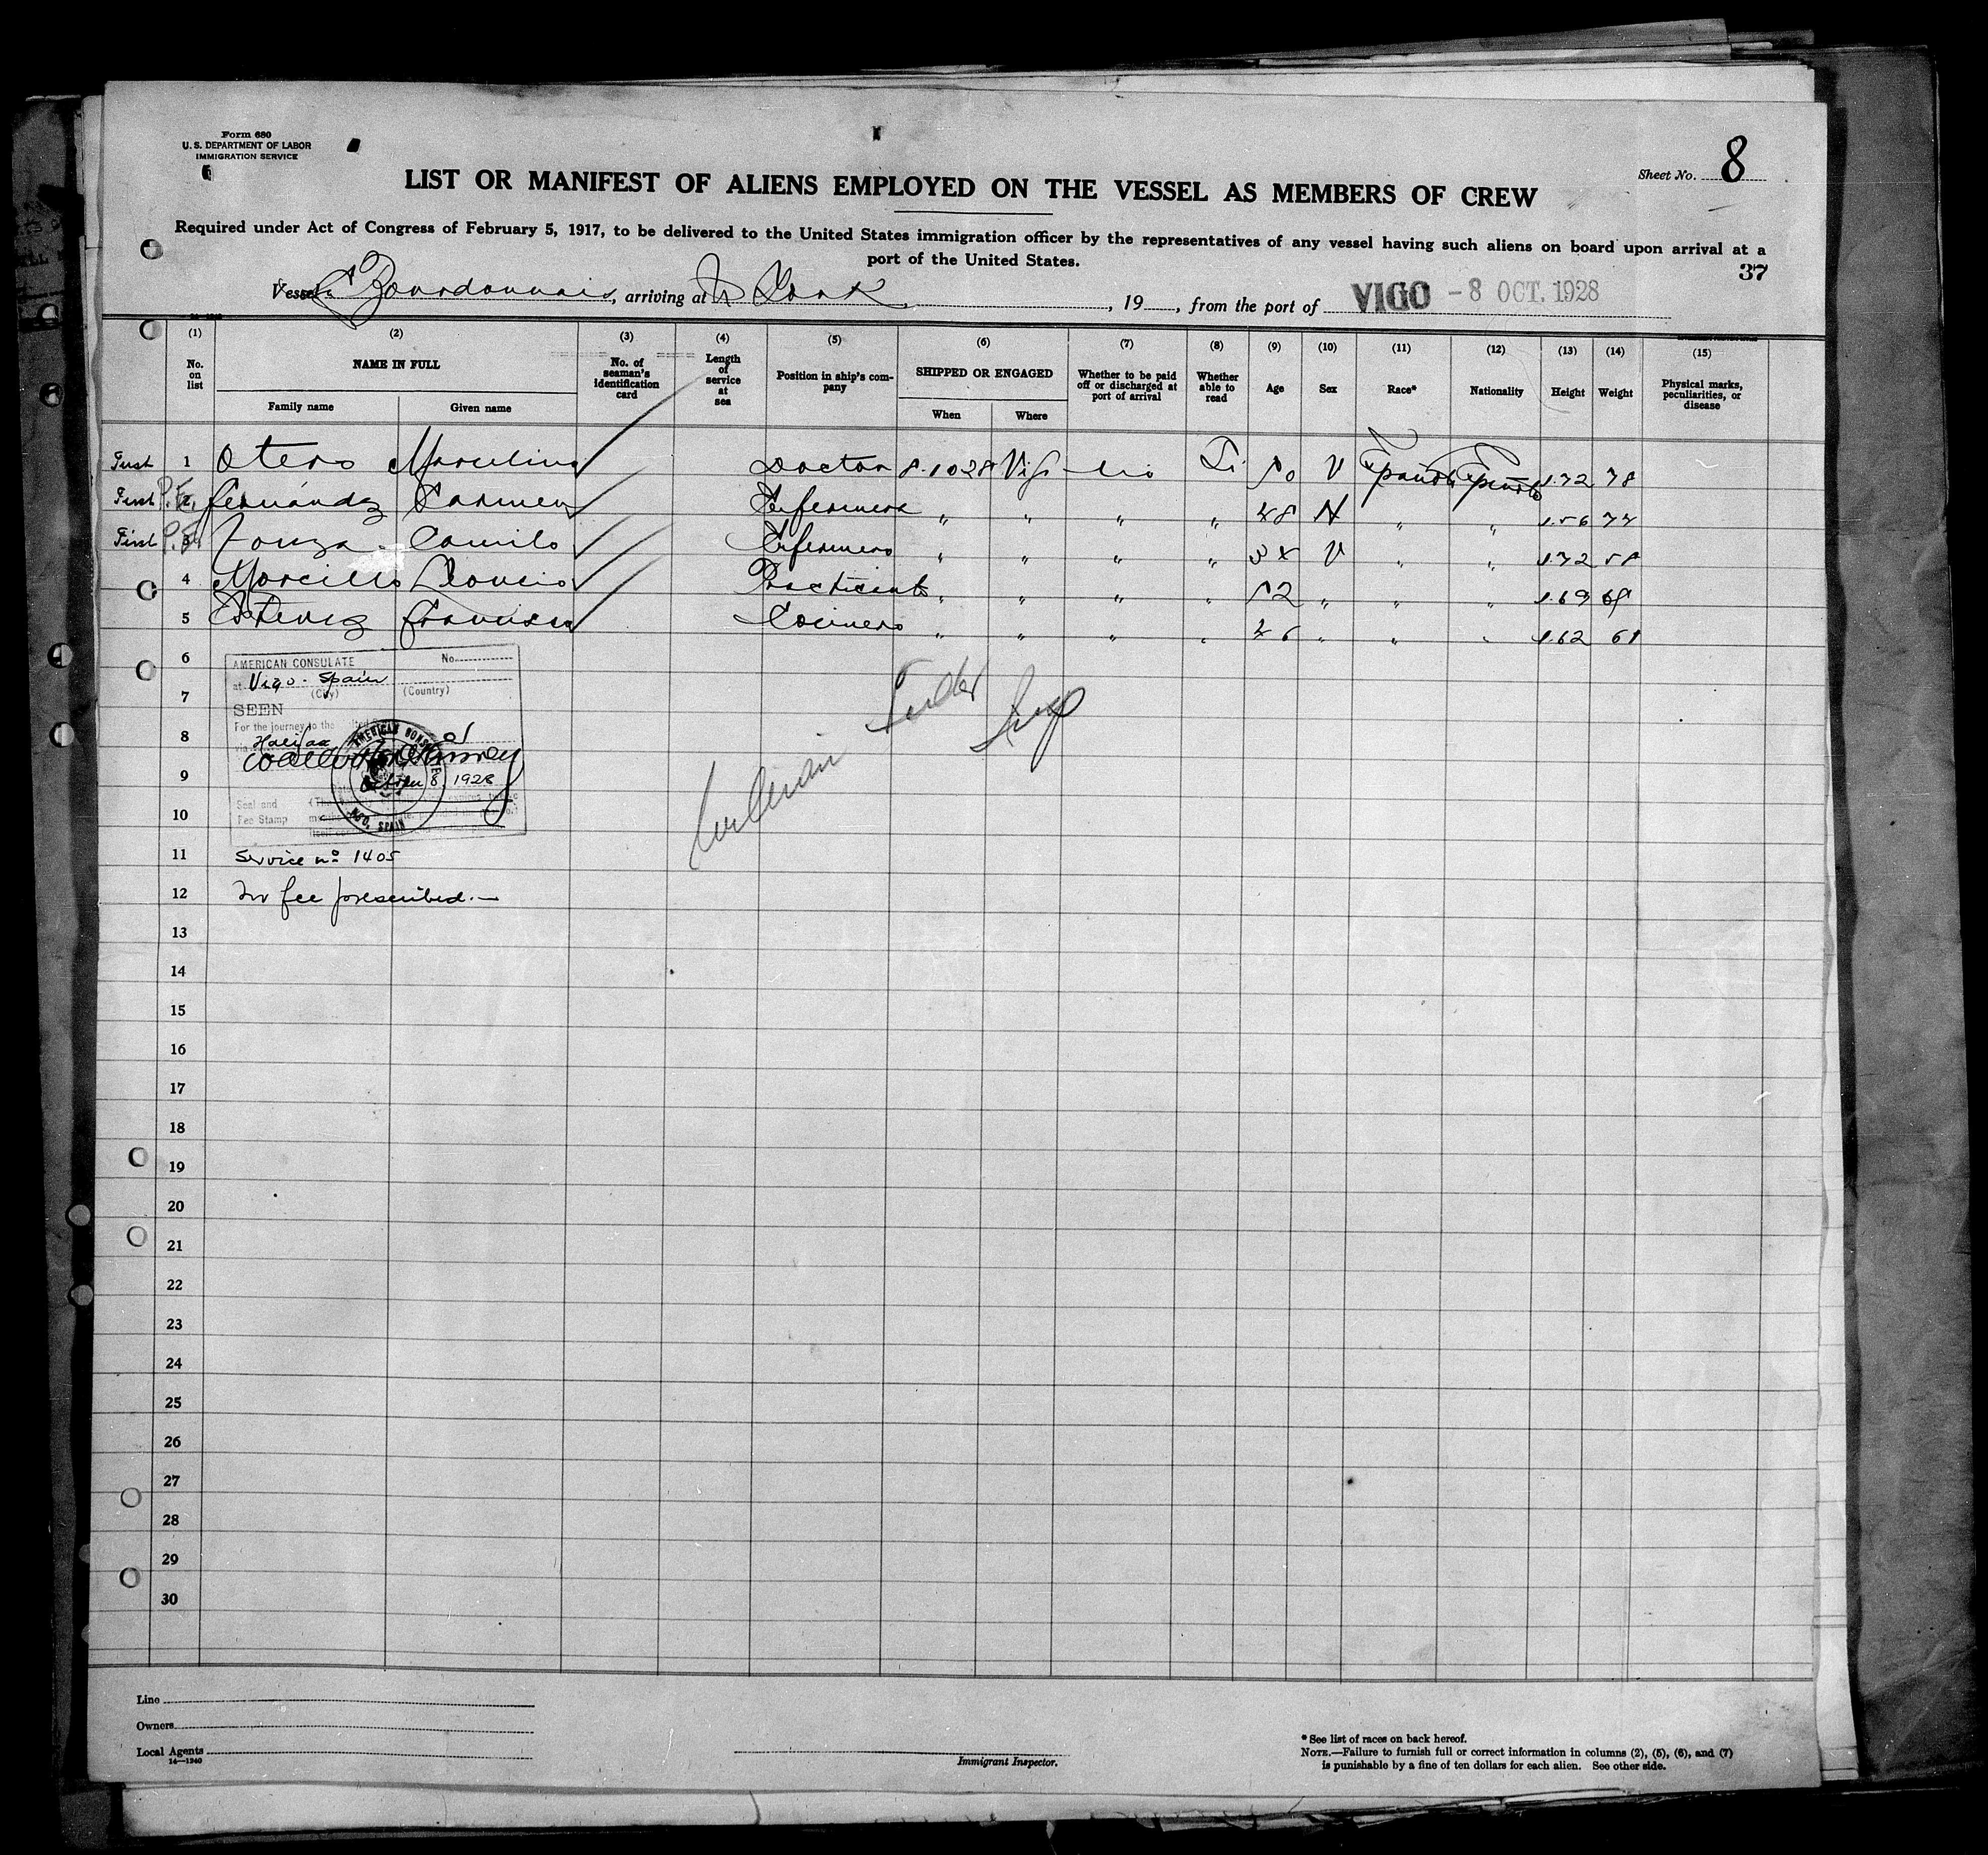 Form 680
U. S. DEPARTMENT OF LABOR
IMMIGRATION SERVICE
Sheet No. 8
LIST OR MANIFEST OF ALIENS EMPLOYED ON THE VESSEL AS MEMBERS OF CREW
Required under Act of Congress of February 5, 1917, to be delivered to the United States immigration officer by the representatives of any vessel having such aliens on board upon arrival at a
port of the United States.
37
Vessel Bourdonnais, arriving at N York, 19, from the port of VIGO -8 OCT. 1928
(1) (2) (3) (4) (5) (6) (7) (8) (9) (10) (11) (12) (13) (14) (15)
No. on list NAME IN FULL No. of seaman's identification card Length of service at sea Position in ship's company SHIPPED OR ENGAGED Whether to be paid off or discharged at port of arrival Whether able to read Age Sex Race* Nationality Height Weight Physical marks, peculiarities, or disease
Family name Given name When Where
First 1 Otero Marcelino Doctor 8.10 28 Vigo No Si 50 V Española Española 1.72 78
First P.F. 2 Fernández Carmen Enfermera " " " " 48 H " " 1.56 74
First P.F. 3 Camilo Enfermero " " " " 34 V " " 1.72 58
4 Morcillo Dionisio Practicante " " " " 52 " " " 1.69 68
5 Estevez Francisco Cocinero " " " " 46 " " " 1.62 61
6
AMERICAN CONSULATE No.
at Vigo - Spain
(City) (Country)
7
SEEN
For the journey to the United
8
via Halifax
AMERICAN CONSULATE
9
October 8, 1928
Seal and
Fee Stamp
10
VIGO, SPAIN
11
Service nº 1405
12
No fee prescribed.—
13
14
15
16
17
18
19
20
21
22
23
24
25
26
27
28
29
30
Line
Owners
Local Agents
14—1240
Immigrant Inspector.
* See list of races on back hereof.
NOTE.—Failure to furnish full or correct information in columns (2), (5), (6), and (7)
is punishable by a fine of ten dollars for each alien. See other side.